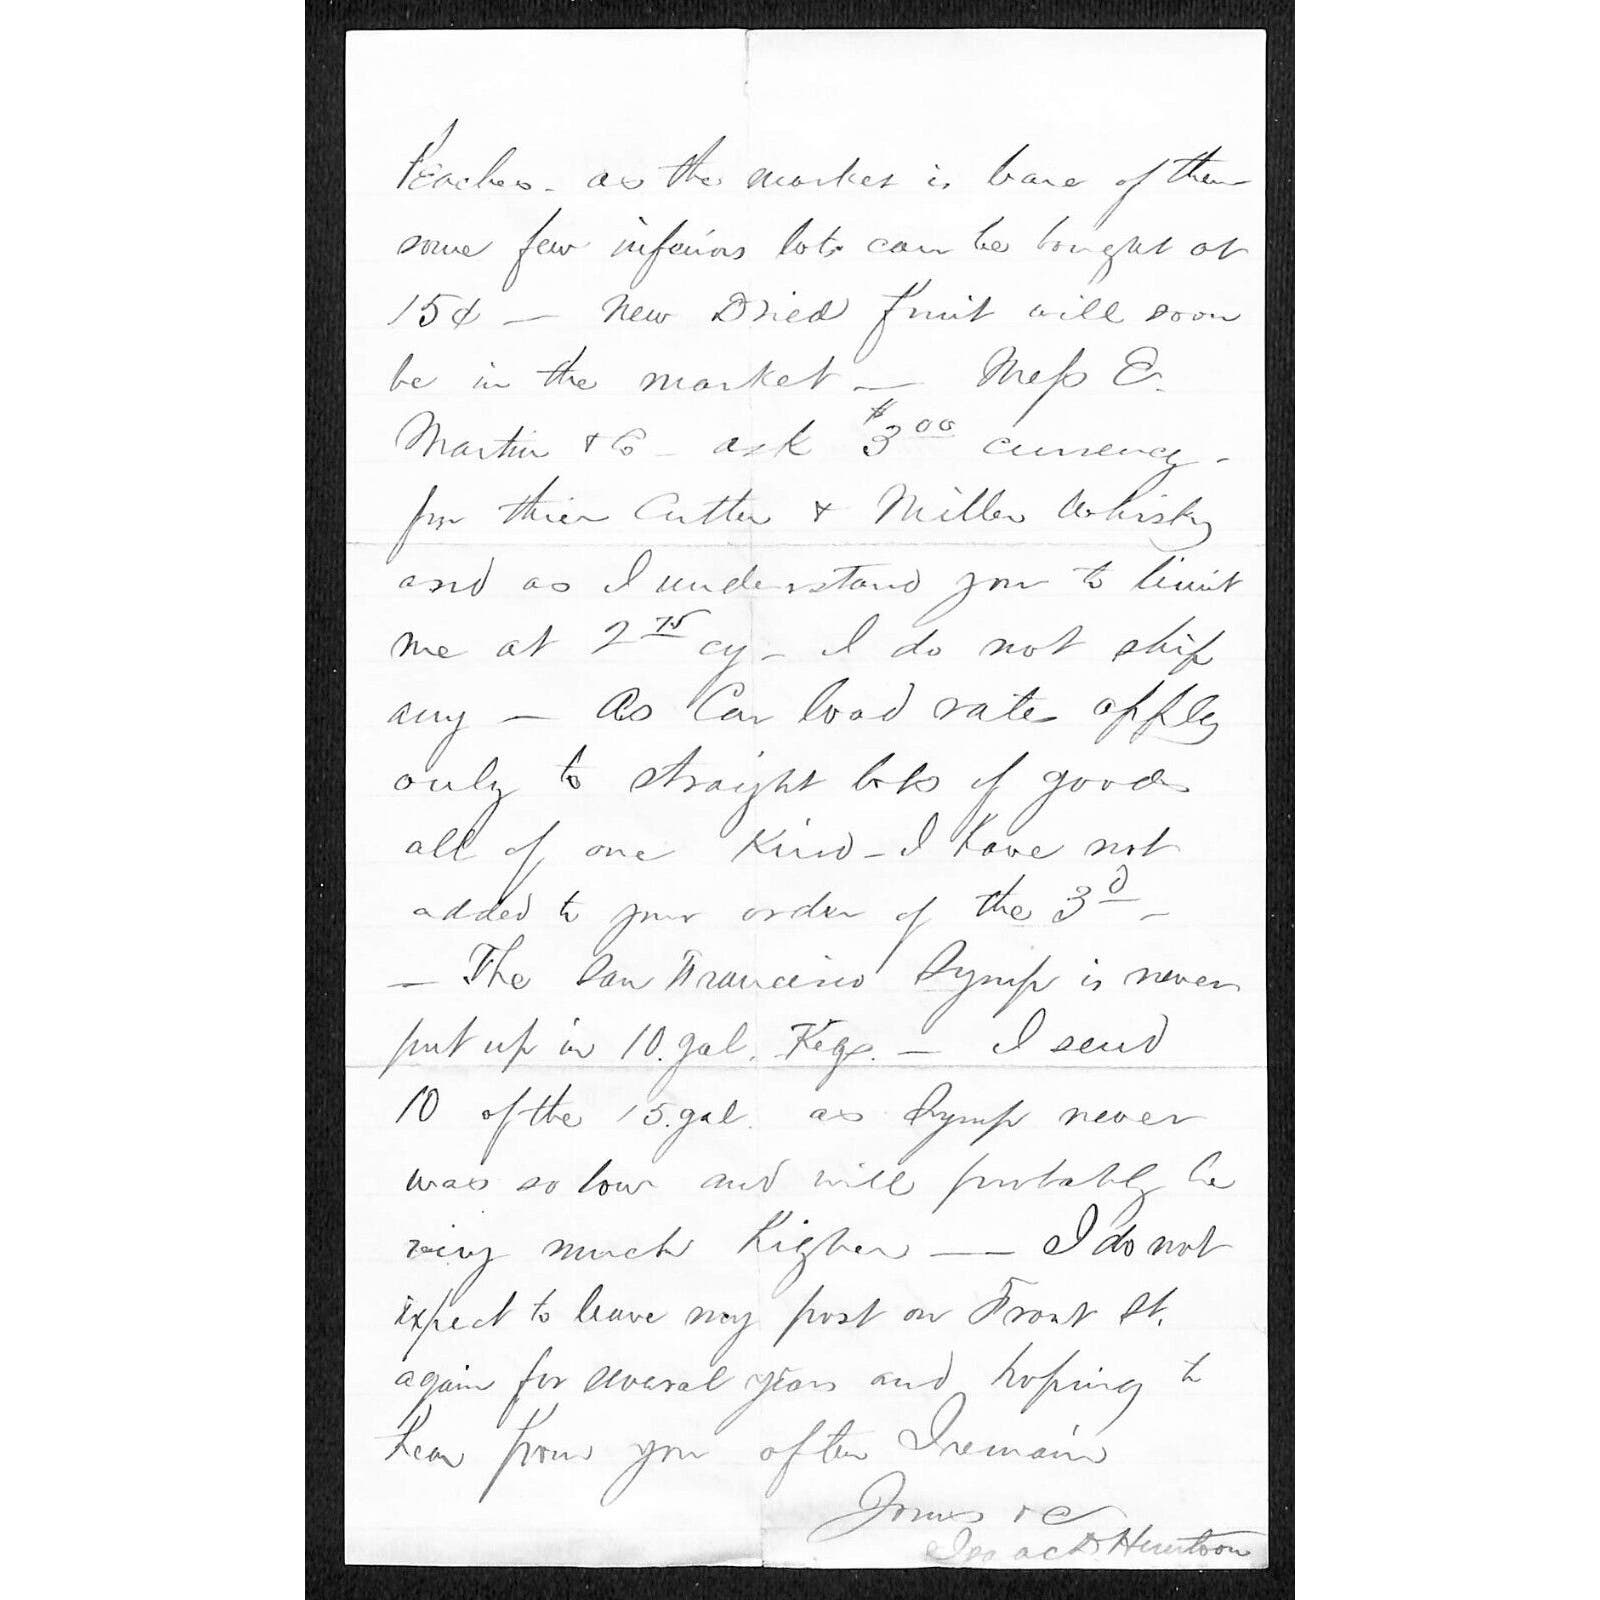 Peaches - as the market is bare of them
some few inferior lots can be bought at
15¢ — New Dried fruit will soon
be in the market — Mess E.
Martin & Co - ask $3.00 currency -
for thier Cutter & Miller Whisky
and as I understand you to limit
me at 2 75 cy - I do not ship
any — As Car load rates apply
only to straight lots of goods
all of one Kind - I have not
added to your order of the 3d -
— The San Francisco Syrup is never
put up in 10. gal. Kegs. — I send
10 of the 15. gal. as Syrup never
was so low and will probably be
very much higher — — I do not
expect to leave my post on Front St.
again for several years and hoping to
hear from you often I remain
Yours &c
Isaac Huntoon